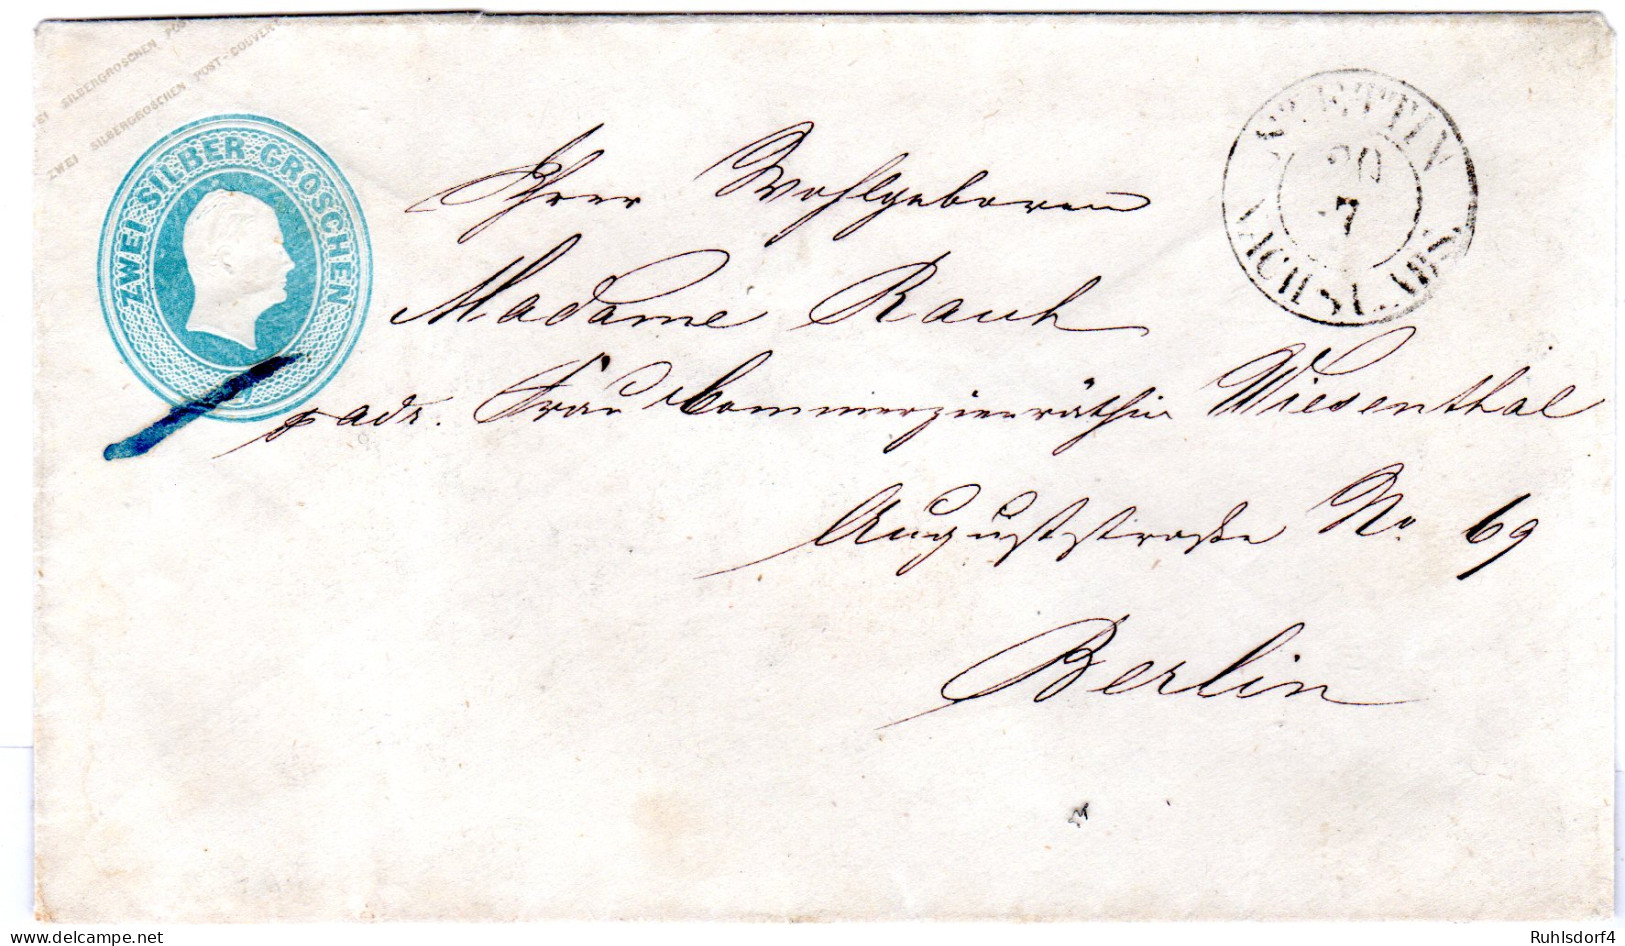 ZWEI SILBERGROSCHEN POST
ZWEI SILBERGROSCHEN POST-COUVERT
ZWEI SILBER GROSCHEN
STETTIN
20
7
NACHST. ABS.
Ihrer Wohlgeboren
Madame Rauh
p adr. Frau Commerzienräthin Wiesenthal
Auguststraße No 69
Berlin
www.delcampe.net
Ruhlsdorf4